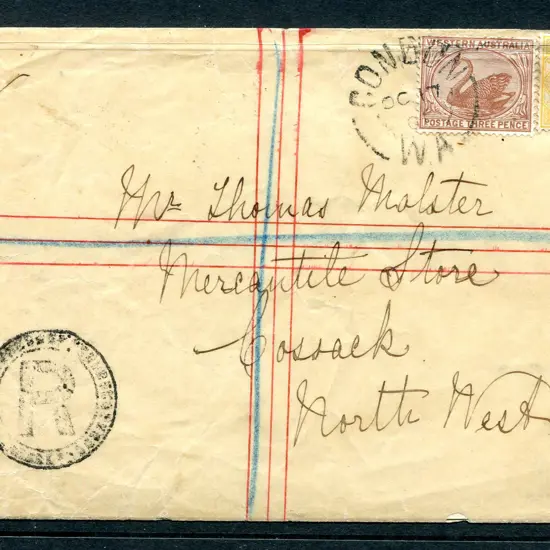 WESTERN AUSTRALIA
POSTAGE THREE PENCE
CONDON
OC 7
W.A
Mr Thomas Molster
Mercantile Store
Cossack
North West
R